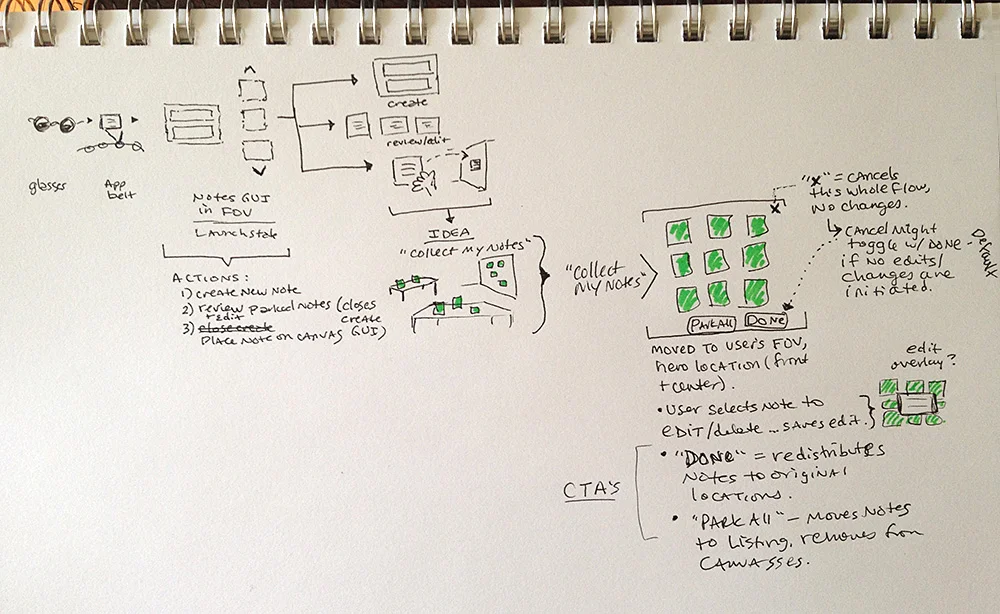 glasses
App
belt
Notes GUI
in FOV
Launch state
ACTIONS:
1) create New Note
2) review parked notes (closes
+ edit
create
GUI)
3) close create
Place Note on canvas
create
review/edit
IDEA
"collect my notes"
"collect
my notes"
x
"X" = cancels
this whole flow,
no changes.
cancel might
toggle w/ DONE -
Default
if no edits/
changes are
initiated.
Park All
Done
moved to user's FOV,
hero location (front
+ center).
• User selects note to
EDIT/delete ... saves edit.
edit
overlay?
CTA's
• "DONE" = redistributes
notes to original
locations.
• "PARK All" – moves notes
to Listing, removes from
canvasses.